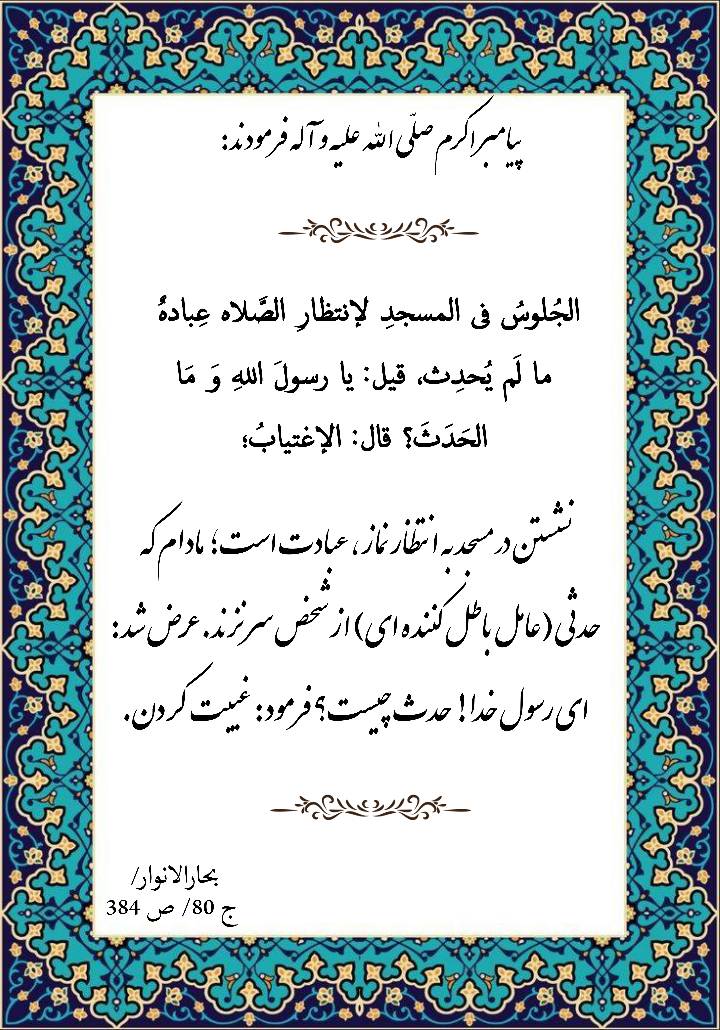 پیامبر اکرم صلّی الله علیه و آله فرمودند:
الجُلوسُ فی المسجدِ لإنتظارِ الصَّلاه عِبادهٌ
ما لَم یُحدِث، قیل: یا رسولَ اللهِ وَ مَا
الحَدَثَ؟ قال: الإغتیابُ؛
نشستن در مسجد به انتظار نماز، عبادت است؛ مادام که
حدثی (عامل باطل کننده ای) از شخص سر نزند. عرض شد:
ای رسول خدا! حدث چیست؟ فرمود: غیبت کردن.
بحارالانوار/
ج 80/ ص 384